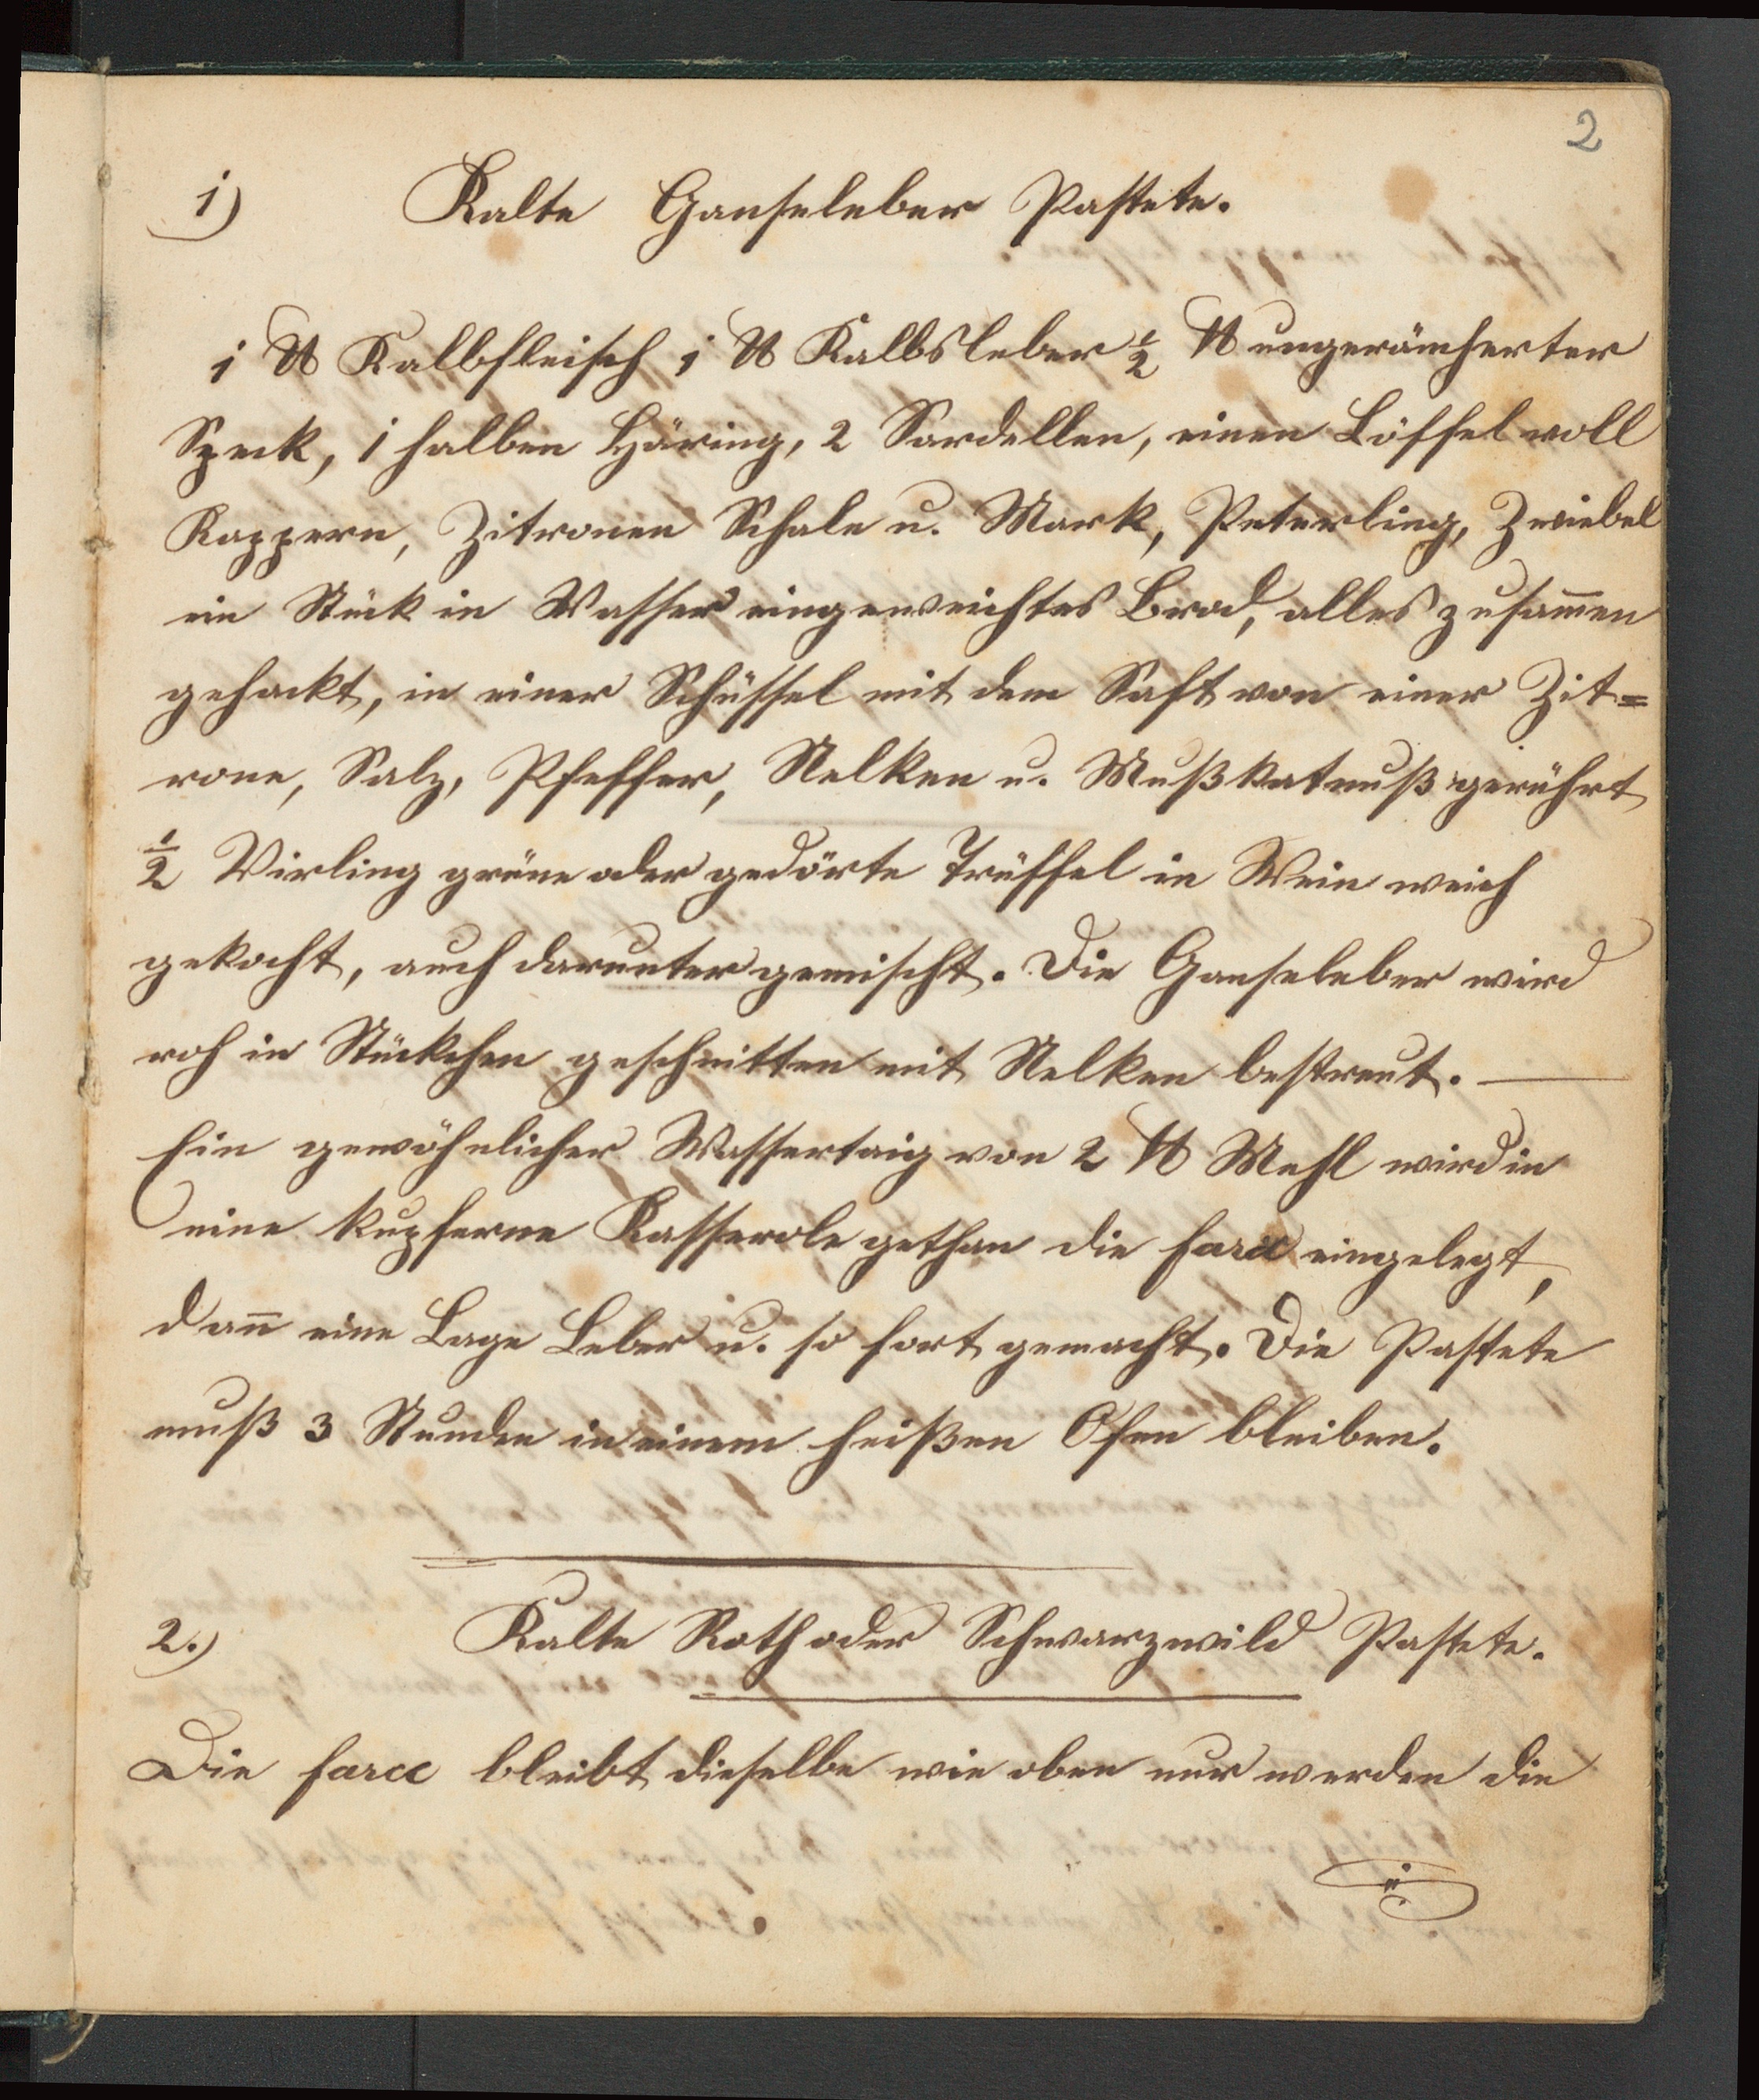 2
1) Kalte Ganseleber Pastete.
1 ℔ Kalbfleisch 1 ℔ Kalbsleber ½ ℔ ungeräucherter
Speck, 1 halben Häring, 2 Sardellen, einen Löffel voll
Kappern, Zitronen Schale u. Mark, Peterling, Zwiebel
ein Stück in Wasser eingeweichtes Brod, alles zusam̅en
gehackt, in einer Schüssel mit dem Saft von einer Zit=
rone, Salz, Pfeffer, Nelken u. Mußkatnuß gerührt
½ Virling grüne oder gedörte Trüffel in Wein weich
gekocht, auch darunter gemischt. Die Ganseleber wird
roh in Stückchen geschnitten mit Nelken bestreut. —
Ein gewöhnlicher Wassertaig von 2 ℔ Mehl wird in
eine kupferne Kasserole gethan die farce eingelegt,
dan̅ eine Lage Leber u. so fort gemacht. Die Pastete
muß 3 Stunden in einem heißen Ofen bleiben.
2.) Kalte Roth oder Schwarzwild Pastete.
Die farce bleibt dieselbe wie oben nur werden die